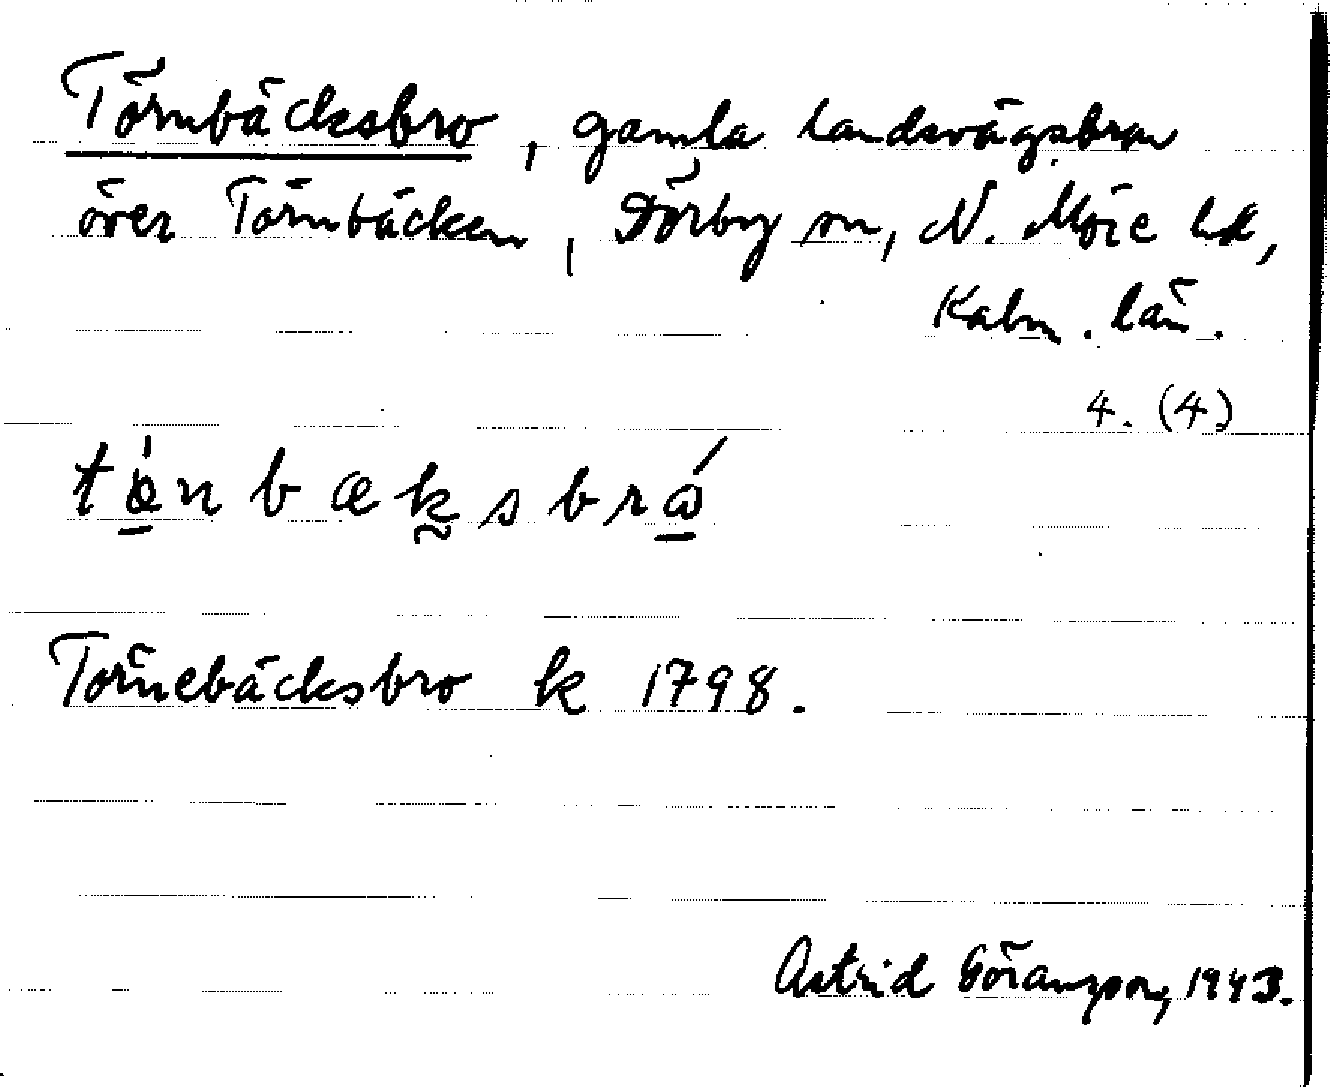 Törnbäcksbro, gamla landsvägsbron
över Törnbäcken, Dörby sn, N. Möre hd,
Kalm. län.
4. (4)
tɵ̀nbæksbrɷ́
Törnebäcksbro k 1798.
Astrid Göranzson, 1943.